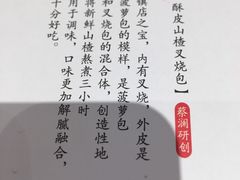 酥皮山楂叉烧包】
蔡澜研创
镇店之宝，内有叉烧，外皮是
菠萝包的模样，是菠萝包
和叉烧包的混合体，创造性地
将新鲜山楂熬煮三小时
用于调味，口味更加解腻融合，
十分好吃。